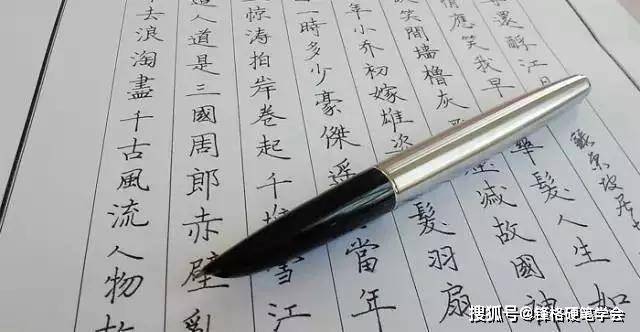 去浪淘盡千古風流人物
人道是三國周郎赤壁亂
惊涛拍岸卷起千堆雪江
一時多少豪傑遥當年
年小乔初嫁雄髮羽扇
笑間墙櫓灰滅故國神
情應笑我早華髮人生如
還酹江月
蘇東坡
搜狐号@锋格硬笔学会